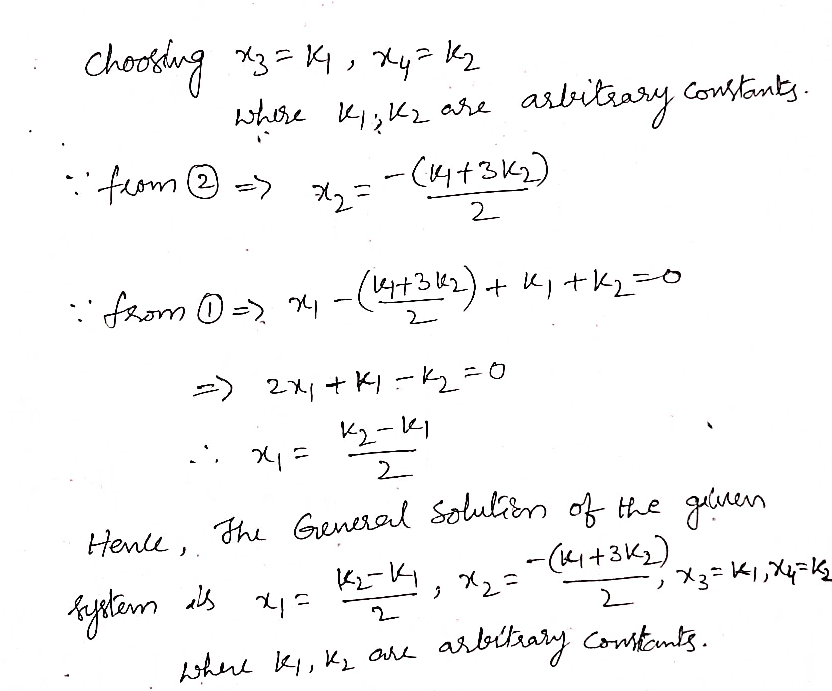 Choosing x₃ = k₁, x₄ = k₂
where k₁, k₂ are arbitrary constants.
∵ from ② => x₂ = -(k₁+3k₂)/2
∵ from ① => x₁ - (k₁+3k₂)/2 + k₁ + k₂ = 0
=> 2x₁ + k₁ - k₂ = 0
∴ x₁ = k₂-k₁/2
Hence, The General Solution of the given
system is x₁ = k₂-k₁/2, x₂ = -(k₁+3k₂)/2, x₃ = k₁, x₄ = k₂
where k₁, k₂ are arbitrary constants.